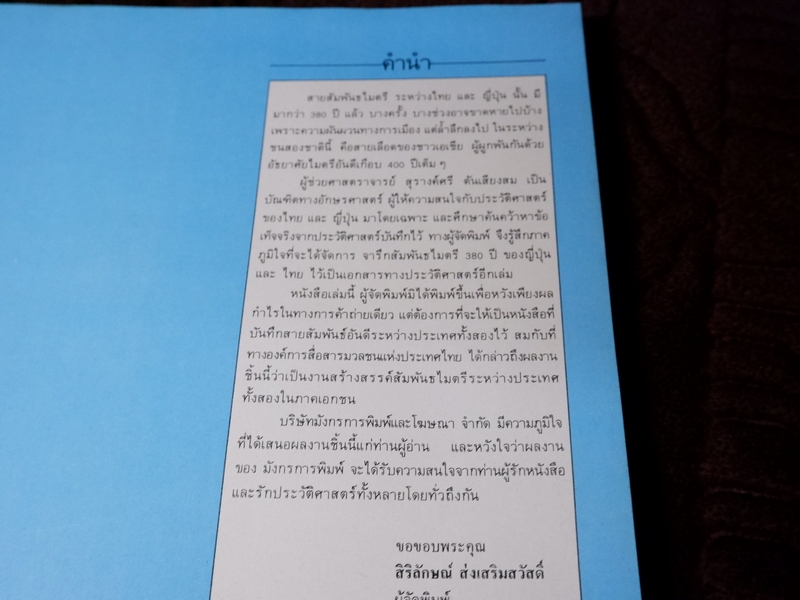 คำนำ
สายสัมพันธไมตรี ระหว่างไทย และ ญี่ปุ่น นั้น มี
มากว่า 380 ปี แล้ว บางครั้ง บางช่วงอาจขาดหายไปบ้าง
เพราะความผันผวนทางการเมือง แต่ล้ำลึกลงไป ในระหว่าง
ชนสองชาตินี้ คือสายเลือดของชาวเอเชีย ผู้ผูกพันกันด้วย
อัธยาศัยไมตรีอันดีเกือบ 400 ปีเต็ม ๆ
ผู้ช่วยศาสตราจารย์ สุรางค์ศรี ตันเสียงสม เป็น
บัณฑิตทางอักษรศาสตร์ ผู้ให้ความสนใจกับประวัติศาสตร์
ของไทย และ ญี่ปุ่น มาโดยเฉพาะ และศึกษาค้นคว้าหาข้อ
เท็จจริงจากประวัติศาสตร์บันทึกไว้ ทางผู้จัดพิมพ์ จึงรู้สึกภาค
ภูมิใจที่จะได้จัดการ จารึกสัมพันธไมตรี 380 ปี ของญี่ปุ่น
และ ไทย ไว้เป็นเอกสารทางประวัติศาสตร์อีกเล่ม
หนังสือเล่มนี้ ผู้จัดพิมพ์มิได้พิมพ์ขึ้นเพื่อหวังเพียงผล
กำไรในทางการค้าถ่ายเดียว แต่ต้องการที่จะให้เป็นหนังสือที่
บันทึกสายสัมพันธ์อันดีระหว่างประเทศทั้งสองไว้ สมกับที่
ทางองค์การสื่อสารมวลชนแห่งประเทศไทย ได้กล่าวถึงผลงาน
ชิ้นนี้ว่าเป็นงานสร้างสรรค์สัมพันธไมตรีระหว่างประเทศ
ทั้งสองในภาคเอกชน
บริษัทมังกรการพิมพ์และโฆษณา จำกัด มีความภูมิใจ
ที่ได้เสนอผลงานชิ้นนี้แก่ท่านผู้อ่าน และหวังใจว่าผลงาน
ของ มังกรการพิมพ์ จะได้รับความสนใจจากท่านผู้รักหนังสือ
และรักประวัติศาสตร์ทั้งหลายโดยทั่วถึงกัน
ขอขอบพระคุณ
สิริลักษณ์ ส่งเสริมสวัสดิ์
ผู้จัดพิมพ์